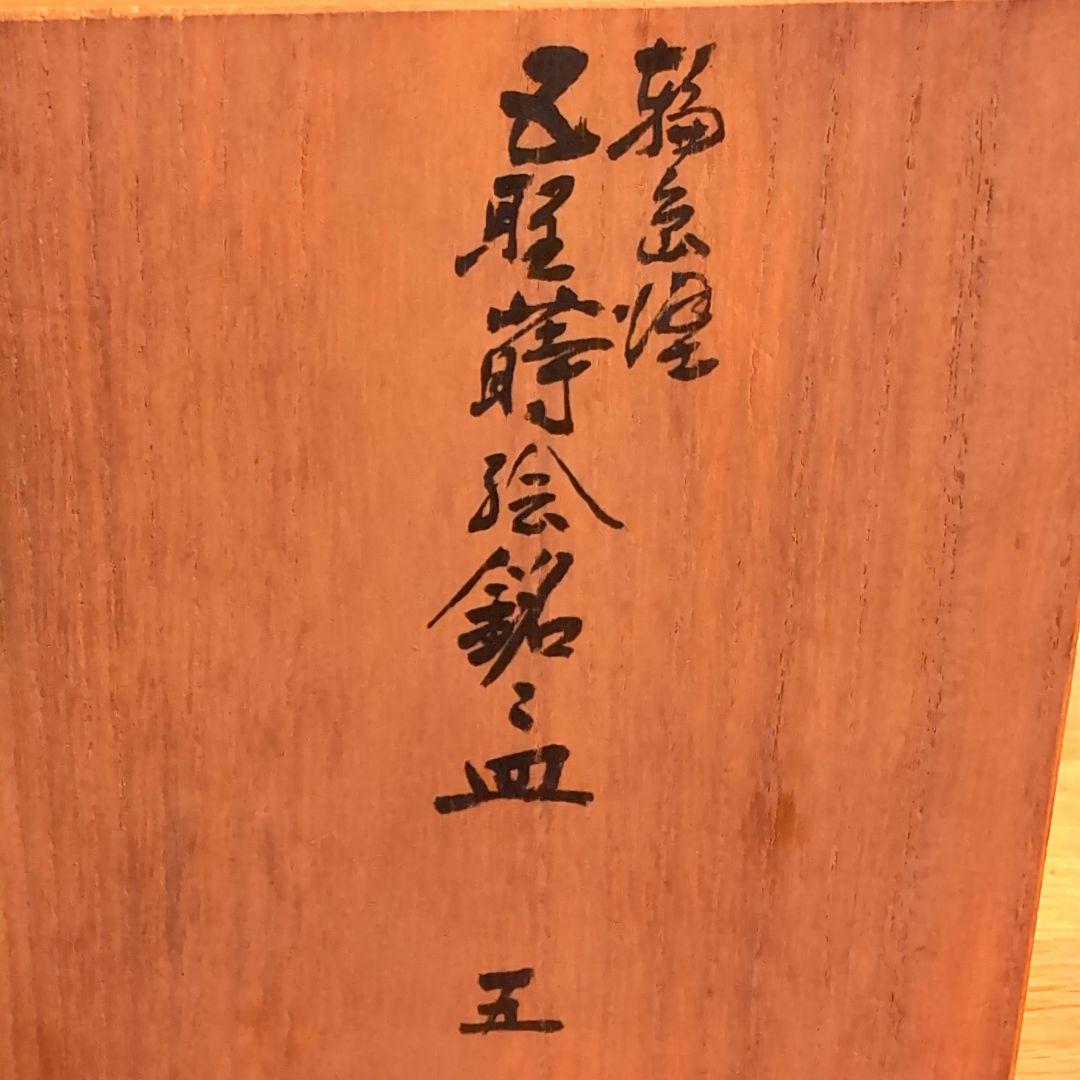 輪島塗
五聖蒔絵銘々皿
五